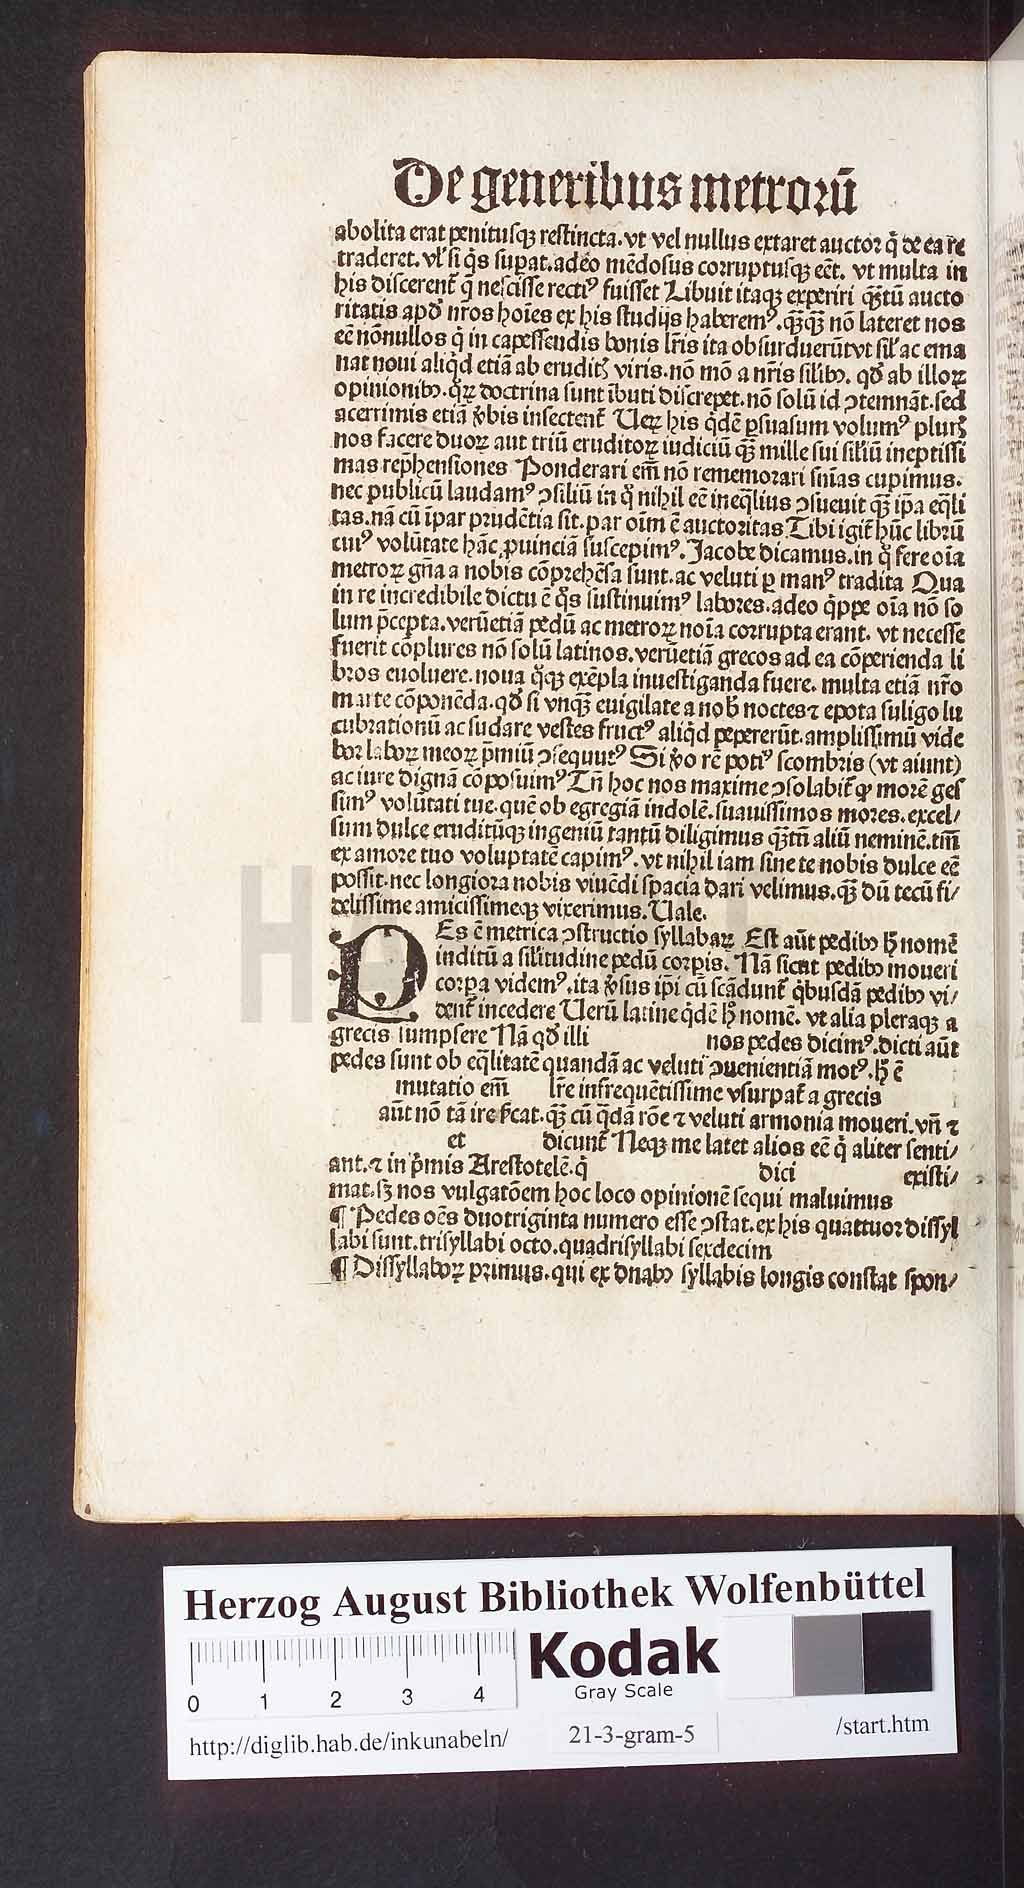 De generibus metrorū
abolita erat penitusqꝫ restincta. vt vel nullus extaret auctor q̇ de ea re
traderet. vl' si q̇s supat. adeo mēdosus corruptusqꝫ eēt. vt multa in
his discerent̄ q̄ nescisse rectiꝰ fuisset Libuit itaqꝫ experiri qꝫtū aucto
ritatis apd' nr̄os hoīes ex his studijs haberemꝰ. qꝫqꝫ nō lateret nos
eē nōnullos q̇ in capessendis bonis lr̄is ita obsurduerūt vt sil' ac ema
nat noui aliq̇d etiā ab eruditꝭ viris. nō mō a nr̄is silibꝰ. qd' ab illoꝝ
opinionibꝰ. q̊ꝝ doctrina sunt ībuti discrepet. nō solū id ꝯtemnāt. sed
acerrimis etiā v̓bis insectent̄ Ueꝝ his q̇dē ꝑsuasum volumꝰ plurꝭ
nos facere duoꝝ aut triū eruditoꝝ iudiciū qꝫ mille sui sil'iū ineptissi
mas rep̄hensiones Ponderari em̄ nō rememorari sn̄ias cupimus.
nec publicū laudamꝰ ꝯsiliū in q̊ nihil eē ineq̄lius ꝯsueuit qꝫ ip̄a eq̄li
tas. nā cū īpar prudētia sit. par oīm ē auctoritas Tibi igit̄ hūc librū
cuiꝰ volūtate hāc ꝓuinciā suscepimꝰ. Jacobe dicamus. in q̊ fere oīa
metroꝝ gn̄a a nobis cōprehēsa sunt. ac veluti ꝑ manꝰ tradita Qua
in re incredibile dictu ē q̊s sustinuimꝰ labores. adeo q̇ppe oīa nō so
lum p̄cepta. verūetiā pedū ac metroꝝ noīa corrupta erant. vt necesse
fuerit cōplures nō solū latinos. verūetiā grecos ad ea cōperienda li
bros euoluere. noua q̊qꝫ exēpla inuestiganda fuere. multa etiā nr̄o
marte cōponēda. qd' si vnqꝫ euigilate a nob' noctes ⁊ epota fuligo lu
cubrationū ac sudare vestes fructꝰ aliq̇d pepererūt. amplissimū vide
bor laboꝝ meoꝝ p̄miū ꝯsequutꝰ Si v̓o rē potiꝰ scombris (vt aiunt)
ac iure dignā cōposuimꝰ Tn̄ hoc nos maxime ꝯsolabit̄ ꝙ morē ges
simꝰ volūtati tue. quē ob egregiā indolē. suauissimos mores. excel/
sum dulce erudituqꝫ ingeniū tantū diligimus qꝫtū aliū neminē. tm̄
ex amore tuo voluptatē capimꝰ. vt nihil iam sine te nobis dulce eē
possit. nec longiora nobis viuēdi spacia dari velimus. qꝫ dū tecū fi/
delissime amicissimeqꝫ vixerimus. Uale.
PEs ē metrica ꝯstructio syllabaꝝ Est aūt pedibꝰ h̓ nomē
inditū a sil'itudine pedū corpis. Nā sicut pedibꝰ moueri
corpa videmꝰ. ita v̓sus ip̄i cū scādunt̄ q̇busdā pedibꝰ vi/
dent̄ incedere Uerū latine q̇dē h̓ nomē. vt alia pleraqꝫ a
grecis sumpsere Nā qd' illi nos pedes dicimꝰ. dicti aūt
pedes sunt ob eq̄litatē quandā ac veluti ꝯuenientiā motꝰ. h̓ ē
mutatio em̄ lr̄e infrequētissime vsurpat̄ a grecis
aūt nō tā ire s̓cat. qꝫ cū q̄dā rōe ⁊ veluti armonia moueri. vn̄ ⁊
et dicunt̄ Neqꝫ me latet alios eē q̇ aliter senti/
ant. ⁊ in p̓mis Arestotelē. q̇ dici existi/
mat. sꝫ nos vulgatōem hoc loco opinionē sequi maluimus
¶ Pedes oēs duotriginta numero esse ꝯstat. ex his quattuor dissyl
labi sunt. trisyllabi octo. quadrisyllabi sexdecim
¶ Dissyllaboꝝ primus. qui ex duabꝰ syllabis longis constat spon/
HAB
Herzog August Bibliothek Wolfenbüttel
0 1 2 3 4
Kodak
Gray Scale
http://diglib.hab.de/inkunabeln/ 21-3-gram-5 /start.htm